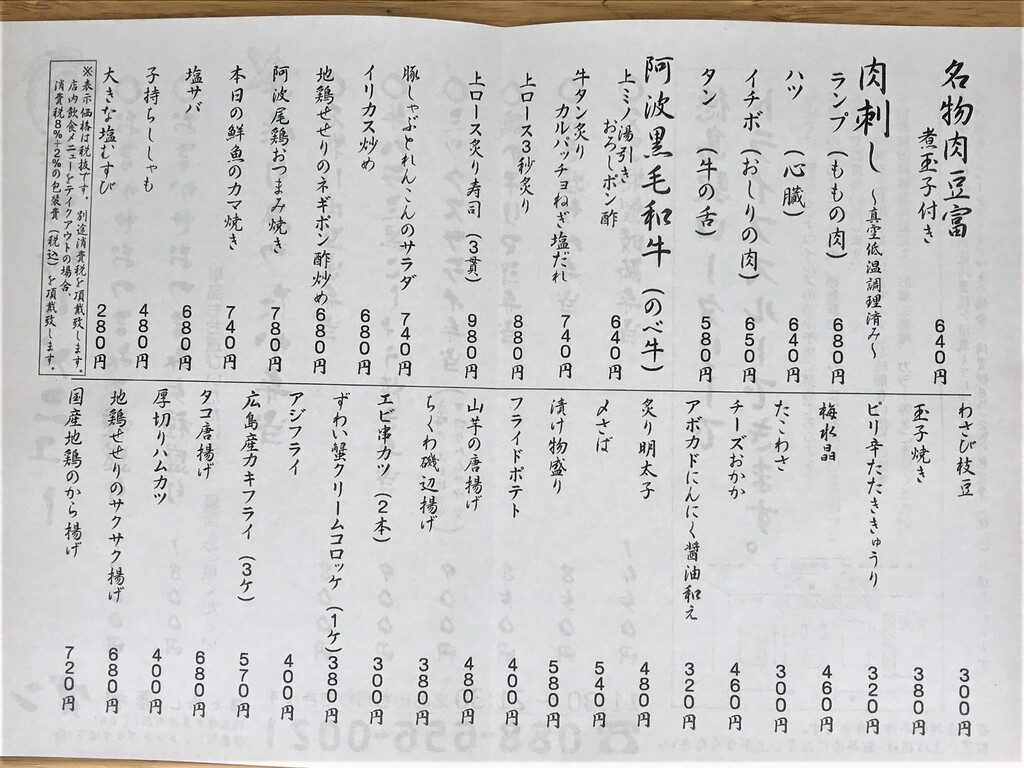 名物肉豆富
煮玉子付き 640円
肉刺し ～真空低温調理済み～
ランプ(ももの肉) 680円
ハツ(心臓) 640円
イチボ(おしりの肉) 650円
タン(牛の舌) 580円
阿波黒毛和牛(のべ牛)
上ミノ湯引き
おろしポン酢 640円
牛タン炙り
カルパッチョねぎ塩だれ 740円
上ロース3秒炙り 880円
上ロース炙り寿司(3貫) 980円
豚しゃぶとれんこんのサラダ 740円
イリカス炒め 680円
地鶏せせりのネギポン酢炒め 680円
阿波尾鶏おつまみ焼き 780円
本日の鮮魚のカマ焼き 740円
塩サバ 680円
子持ちししゃも 480円
大きな塩むすび 280円
※表示価格は税抜です。別途消費税を頂戴致します。
店内飲食メニューをテイクアウトの場合、
消費税8%+2%の包装費(税込)を頂戴致します。
わさび枝豆 300円
玉子焼き 380円
ピリ辛たたききゅうり 320円
梅水晶 460円
たこわさ 300円
チーズおかか 460円
アボカドにんにく醤油和え 320円
炙り明太子 480円
〆さば 540円
漬け物盛り 580円
フライドポテト 400円
山芋の唐揚げ 480円
ちくわ磯辺揚げ 380円
エビ串カツ(2本) 300円
ずわい蟹クリームコロッケ(1ケ) 380円
アジフライ 400円
広島産カキフライ(3ケ) 570円
タコ唐揚げ 680円
厚切りハムカツ 400円
地鶏せせりのサクサク揚げ 680円
国産地鶏のから揚げ 720円